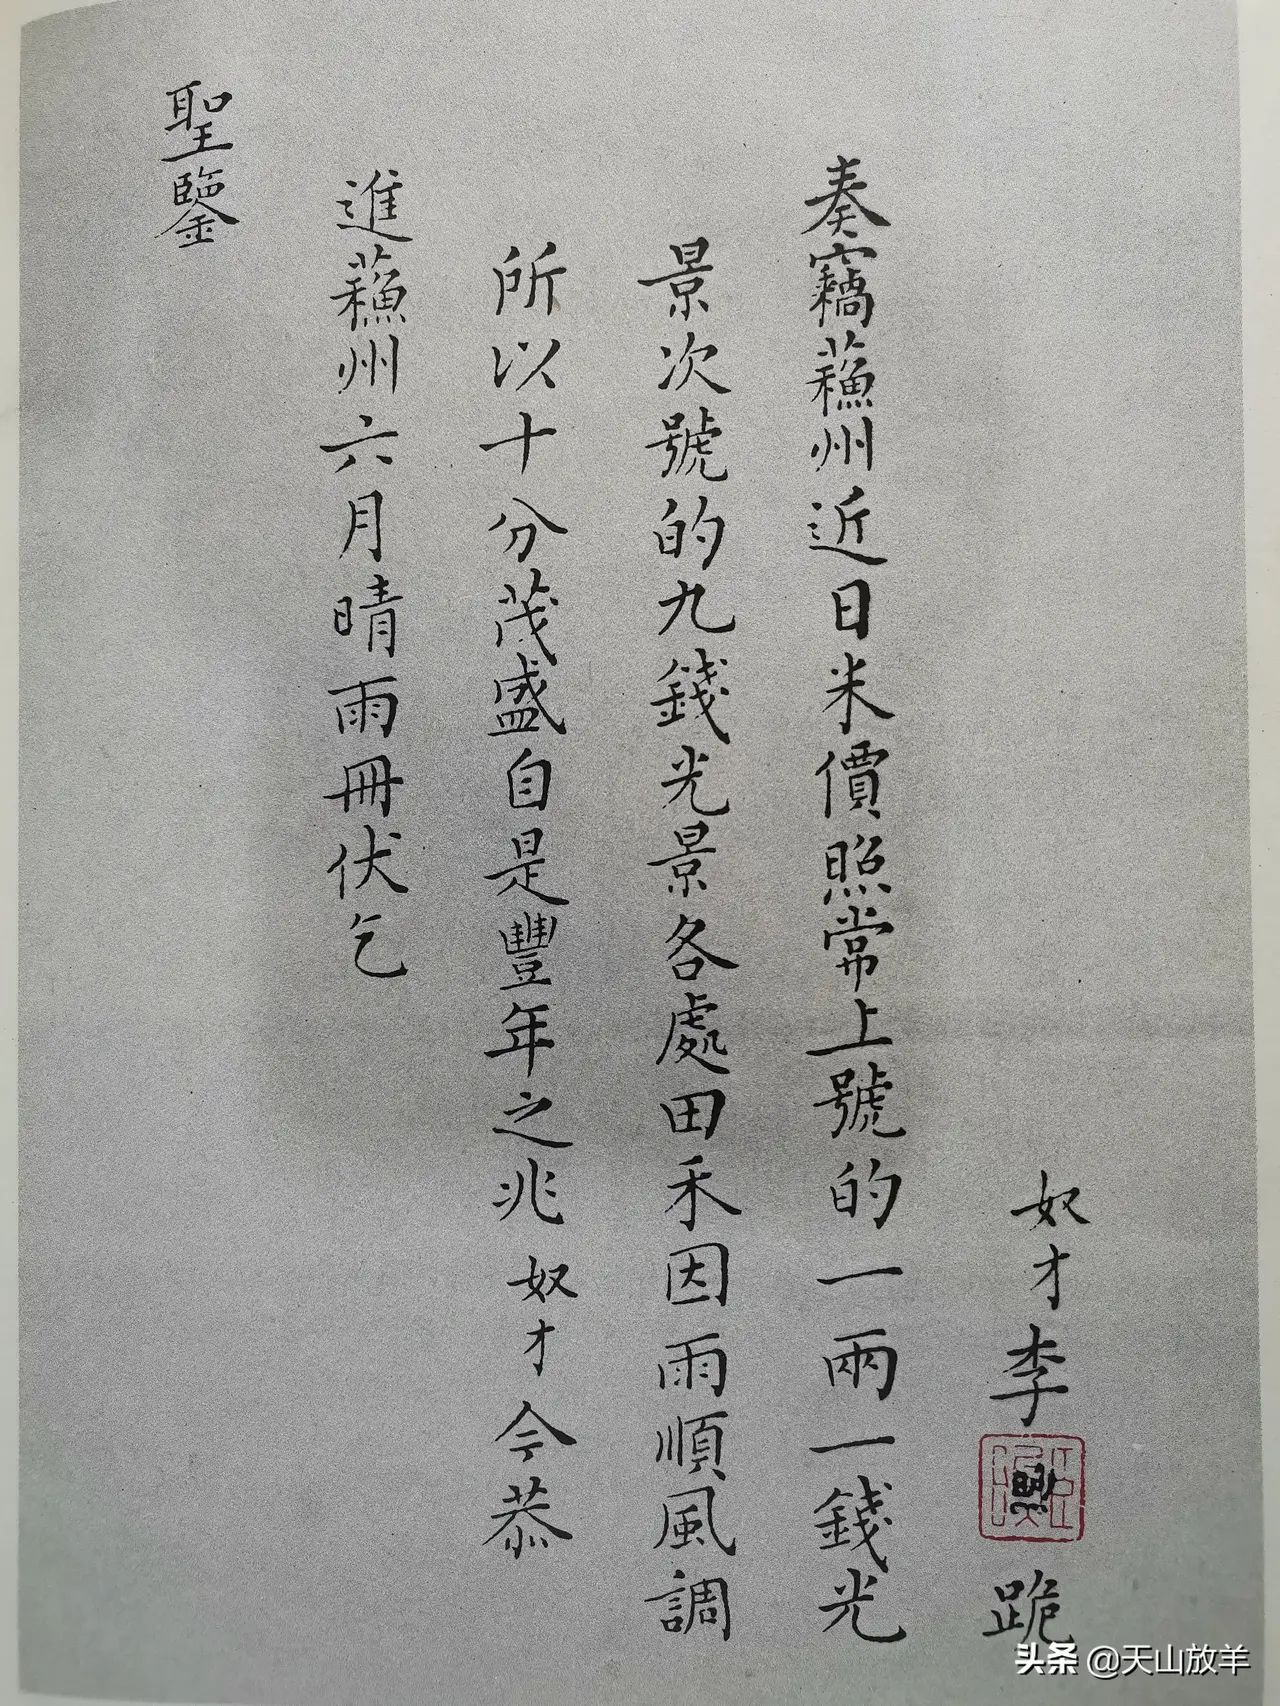 奴才李煦跪
奏竊蘓州近日米價照常上號的一兩一錢光
景次號的九錢光景各處田禾因雨順風調
所以十分茂盛自是豐年之兆奴才今恭
進蘓州六月晴雨冊伏乞
聖鑒
头条 @天山放羊